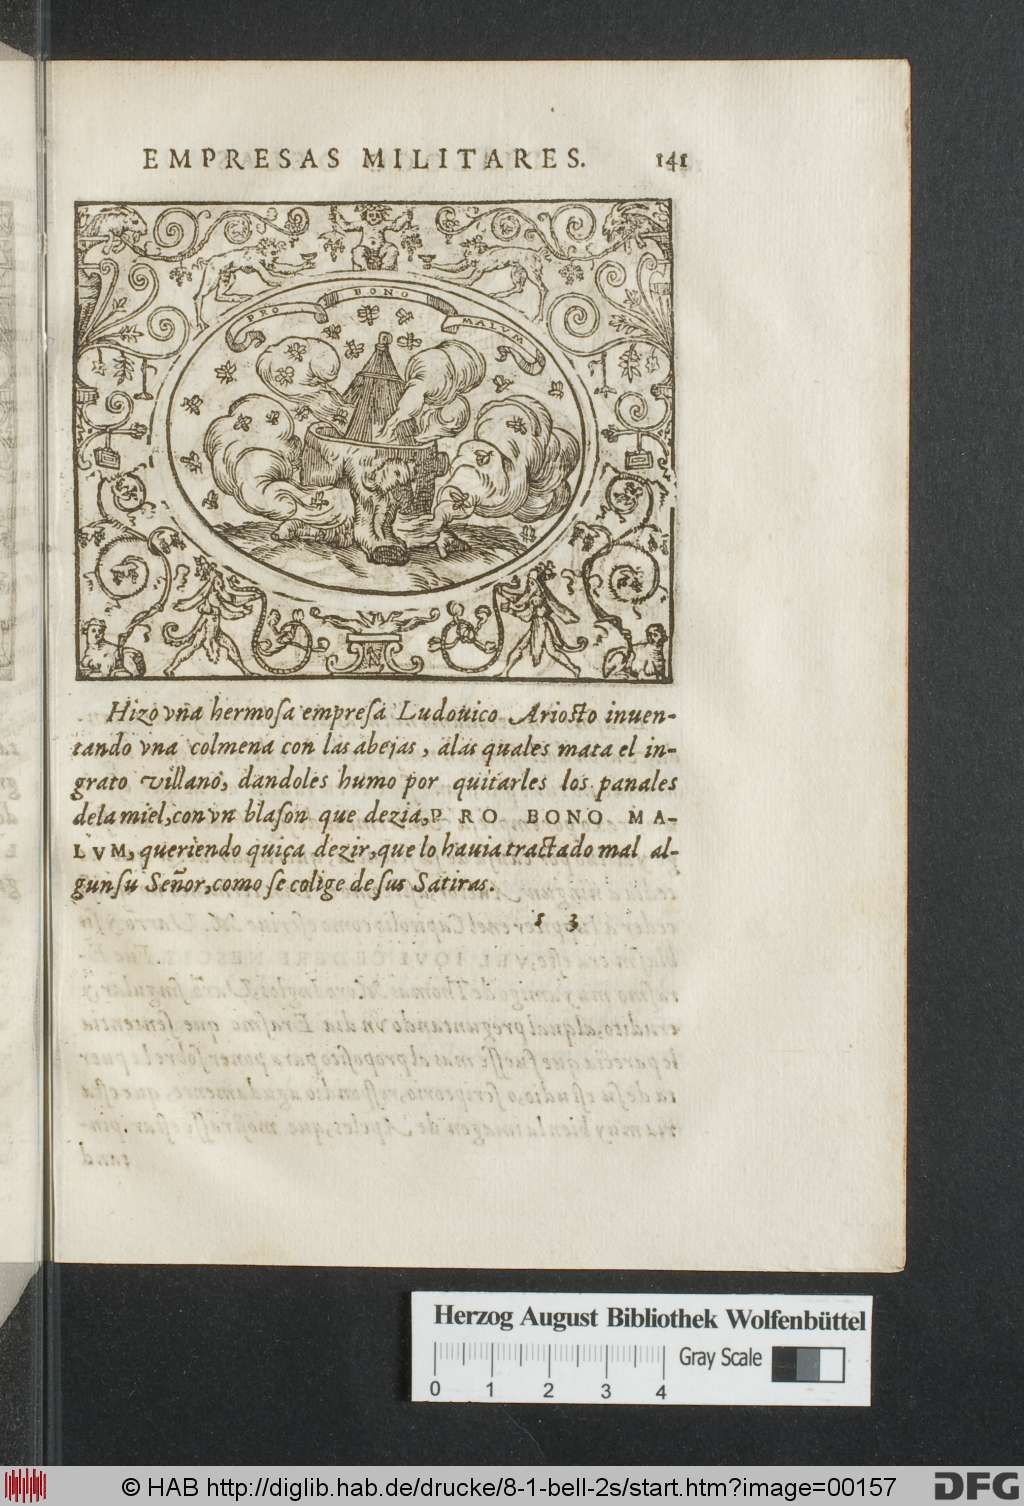 EMPRESAS MILITARES. 141
PRO BONO MALVM
Hizo vna hermosa empresa Ludouico Ariosto inuen-
tando vna colmena con las abejas, alas quales mata el in-
grato villano, dandoles humo por quitarles los panales
dela miel, con vn blason que dezia, PRO BONO MA-
LVM, queriendo quiça dezir, que lo hauia tractado mal al-
gun su Señor, como se colige de sus Satiras.
s 3
Herzog August Bibliothek Wolfenbüttel
Gray Scale
0 1 2 3 4
© HAB http://diglib.hab.de/drucke/8-1-bell-2s/start.htm?image=00157
DFG